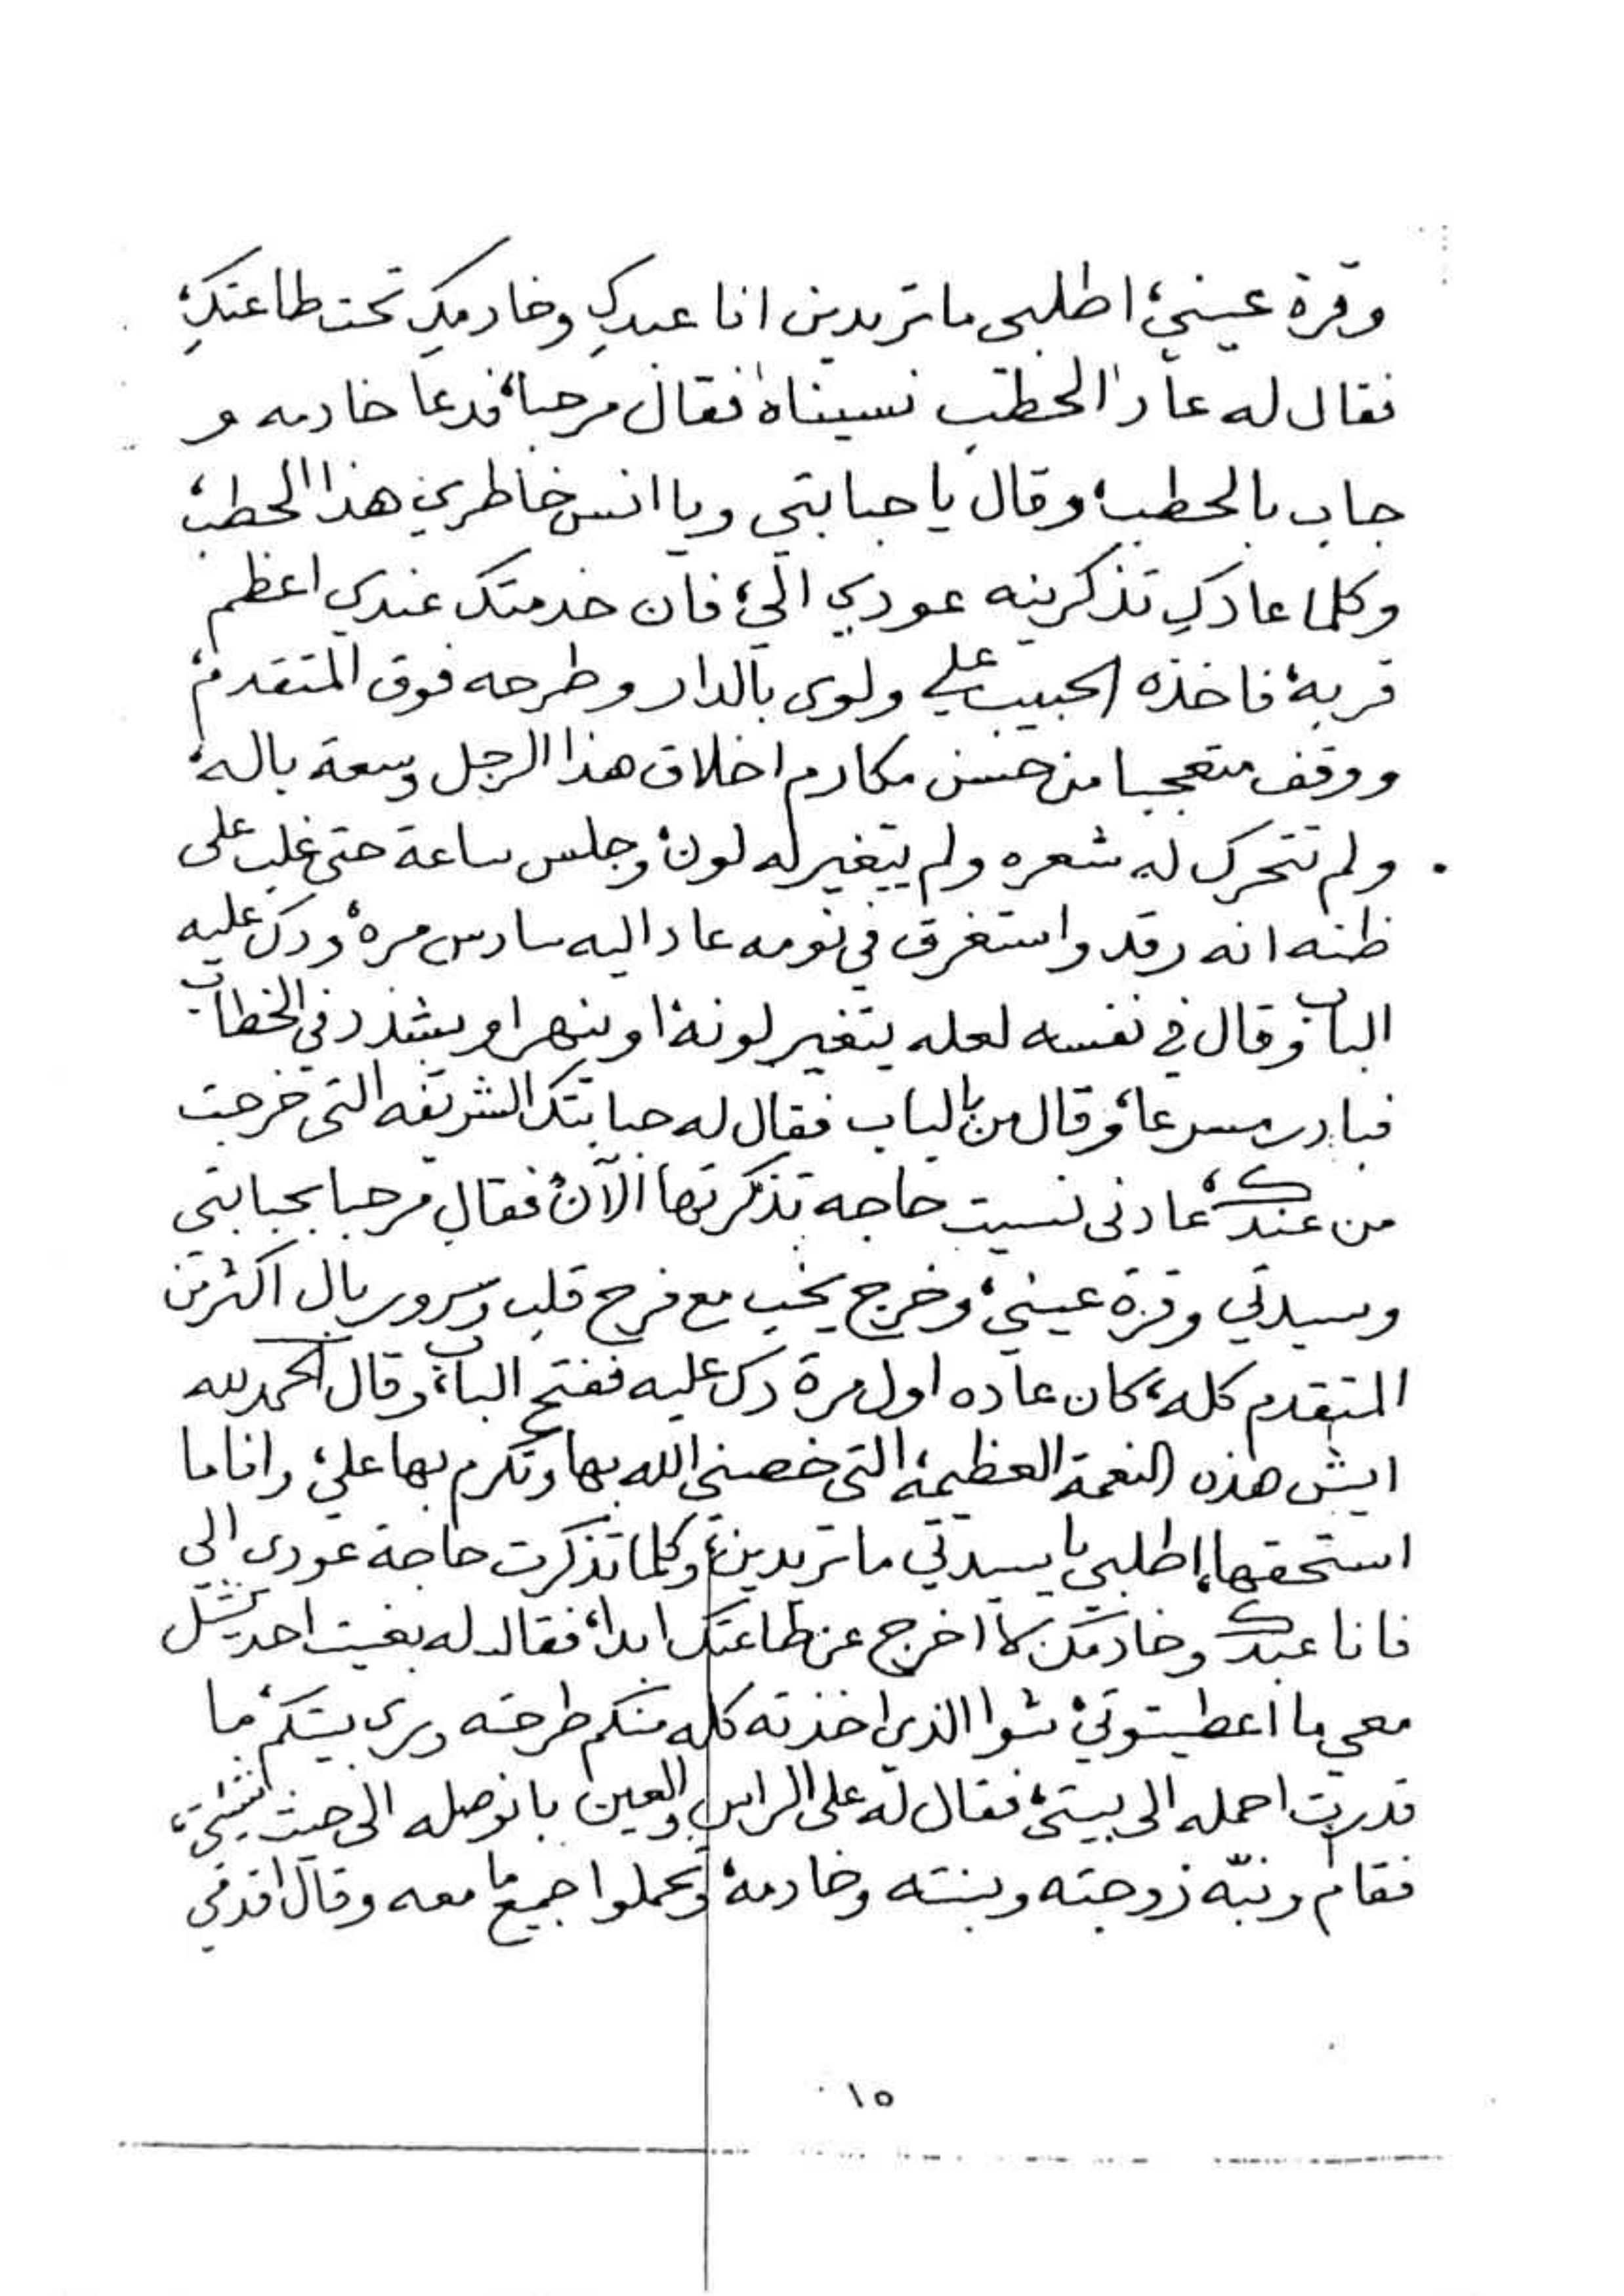 وقرة عيني، اطلبي ما تريدين انا عبدكِ وخادمكِ تحت طاعتكِ،
فقال له عاد الحطب نسيناه فقال مرحبا، فدعا خادمه و
جاب بالحطب، وقال يا حبابتي ويا انس خاطري هذا الحطب،
وكلما عادكِ تذكرينه عودي اليّ، فان خدمتك عندي اعظم
قربة، فاخذه الحبيب علي ولوى بالدار وطرحه فوق المتقدم،
ووقف متعجبا من حسن مكارم اخلاق هذا الرجل وسعة باله،
ولم تتحرك له شعره ولم يتغير له لون، وجلس ساعة حتى غلب على
ظنه انه رقد واستغرق في نومه عاد اليه سادس مرة، ودك عليه
الباب، وقال في نفسه لعله يتغير لونه، او ينهر او يشذر في الخطاب
فبادر مسرعا، وقال من بالباب فقال له حبابتك الشريفه التي خرجت
من عندك، عادني نسيت حاجه تذكرتها الآن، فقال مرحبا بحبابتي
وسيدتي وقرة عيني، وخرج يخب مع فرح قلب وسرور بال اكثر من
المتقدم كله، كان عاده اول مرة دك عليه ففتح الباب، وقال الحمد لله
ايش هذه النعمة العظيمة، التي خصني الله بها وتكرم بها علي، وانا ما
استحقها، اطلبي يا سيدتي ما تريدين، وكلما تذكرت حاجة عودي الي
فانا عبدك وخادمك لا اخرج عن طاعتك ابدا، فقال له بغيت احد يشل
معي ما اعطيتوني، شوا الذي اخذته كله منكم طرحته ورى بيتكم، ما
قدرت احمله الى بيتي، فقال له على الراس والعين بانوصله الى حيث شئتي،
فقام ونبّه زوجته وبنته وخادمه، وتحملوا جميع ما معه وقال اقدمي
١٥